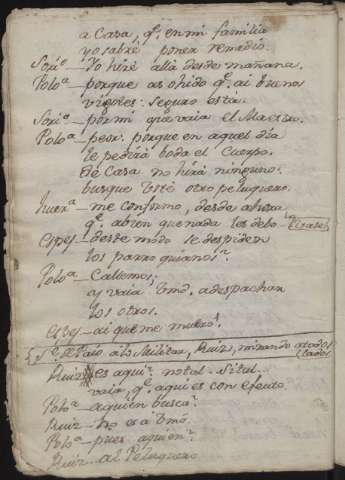 a Casa, q.e en mi familia
yo sabré poner remedio.
Yo hiré allá desde mañana.
Pol.a porque as ohido q.e ai buenos
seguro está.
por mi que vaia el Maestro.
Pol.a peor: porque en aquel dia
le pedirá boda el Cuerpo.
de Casa no hirá ninguno:
busque Usté otro peluquero.
me conformo, desde ahora
q.e abren que nada les debo
deste modo se despiden
los parroquianos?
Pol.a Callemos;
y vaia Vmd. a despachar
los otros.
ai que me muero!
Militar, Ruiz, mirando a todos
Ruiz es aqui? no tal. Si tal...
vaia, q.e aqui es con efecto.
Pol.a a quien busca?
Ruiz no es a Vmd.
Pol.a pues a quien?
Ruiz al Peluquero.